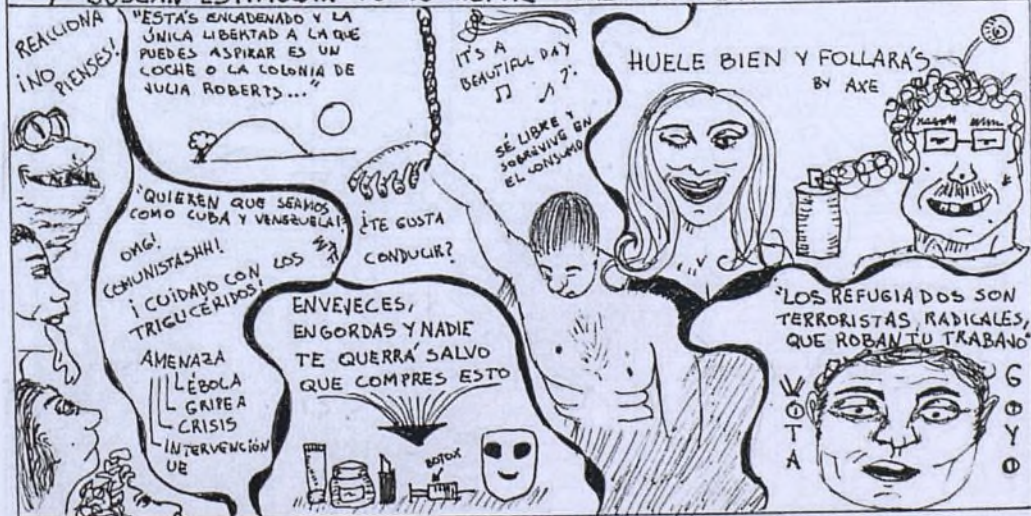 REACCIONA
¡NO
PIENSES!
"ESTÁS ENCADENADO Y LA
ÚNICA LIBERTAD A LA QUE
PUEDES ASPIRAR ES UN
COCHE O LA COLONIA DE
JULIA ROBERTS..."
IT'S A
BEAUTIFUL DAY
SÉ LIBRE Y
SOBREVIVE EN
EL CONSUMO
HUELE BIEN Y FOLLARÁS
BY AXE
"QUIEREN QUE SEAMOS
COMO CUBA Y VENEZUELA!"
OMG!
WTF
COMUNISTASHH!
¡CUIDADO CON LOS
TRIGLICÉRIDOS!
AMENAZA
ÉBOLA
GRIPE A
CRISIS
INTERVENCIÓN
UE
¿TE GUSTA
CONDUCIR?
ENVEJECES,
ENGORDAS Y NADIE
TE QUERRÁ SALVO
QUE COMPRES ESTO
BOTOX
"LOS REFUGIADOS SON
TERRORISTAS, RADICALES,
QUE ROBAN TU TRABAJO"
VOTA
GOYO